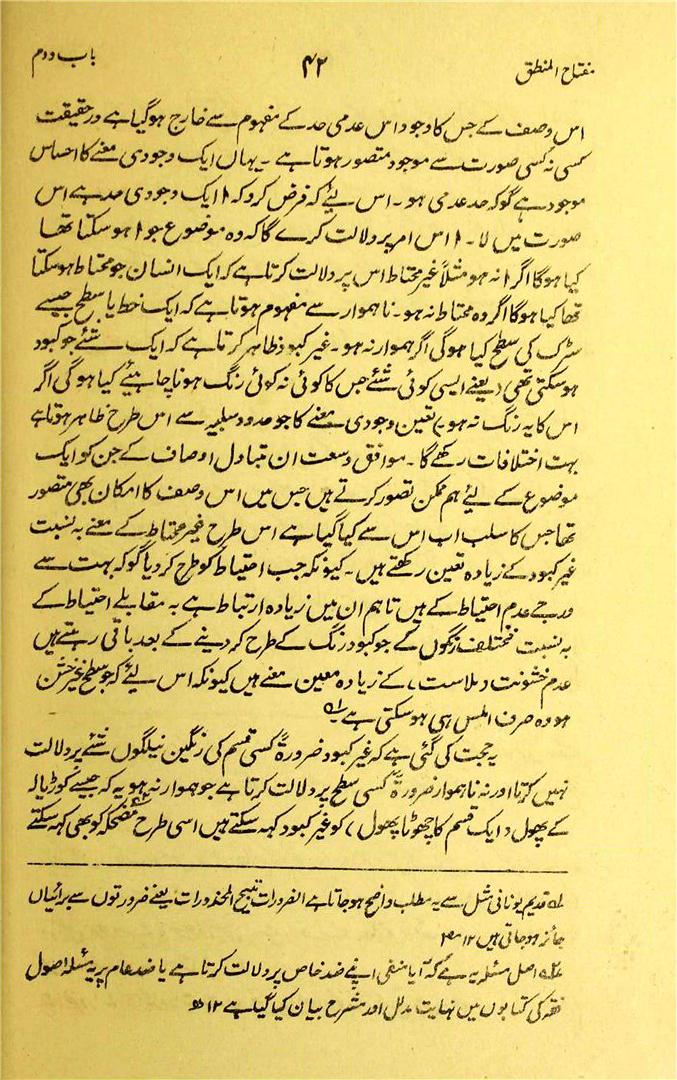 باب دوم
۴۲
مفتاح المنطق
اس وصف کے جس کا وجود اس عدمی حد کے مفہوم سے خارج ہوگیا ہے درحقیقت
کسی نہ کسی صورت سے موجود متصور ہوتا ہے ۔ یہاں ایک وجودی معنے کا احساس
موجود ہے گوکہ حد عدمی ہو ۔ اس لیئے کہ فرض کرو کہ ا ایک وجودی حد ہے اس
صورت میں لا ۔ ا اس امر پر دلالت کرے گا کہ وہ موضوع جو ا ہوسکتا تھا
کیا ہوگا اگر ا نہ ہو مثلاً غیر محتاط اس پر دلالت کرتا ہے کہ ایک انسان جو محتاط ہوسکتا
تھا کیا ہوگا اگر وہ محتاط نہ ہو ۔ ناہموار سے مفہوم ہوتا ہے کہ ایک خط یا سطح جیسے
سڑک کی سطح کیا ہوگی اگر ہموار نہ ہو ۔ غیر کبود ظاہر کرتا ہے کہ ایک شئے جو کبود
ہوسکتی تھی (یعنے ایسی کوئی شئے جس کا کوئی نہ کوئی رنگ ہونا چاہیئے کیا ہوگی اگر
اس کا یہ رنگ نہ ہو) تعین وجودی معنے کا جو حدود سلبیہ سے اس طرح ظاہر ہوتا ہے
بہت اختلافات رکھے گا ۔ موافق وسعت ان متبادل اوصاف کے جن کو ایک
موضوع کے لیئے ہم ممکن تصور کرتے ہیں جس میں اس وصف کا امکان بھی متصور
تھا جس کا سلب اب اس سے کیا گیا ہے اس طرح غیر محتاط کے معنے بہ نسبت
غیر کبود کے زیادہ تعین رکھتے ہیں ۔ کیونکہ جب احتیاط کو طرح کردیا گوکہ بہت سے
درجے عدم احتیاط کے ہیں تاہم ان میں زیادہ ارتباط ہے بہ مقابلے احتیاط کے
بہ نسبت مختلف رنگوں کے جو کبود رنگ کے طرح کردینے کے بعد باقی رہتے ہیں
عدم خشونت (ملاست) کے زیادہ معین معنے ہیں کیونکہ اس لیئے کہ جو سطح غیر خشن
ہو وہ صرف املس ہی ہوسکتی ہے ۔ لہ
یہ حجت کی گئی ہے کہ غیر کبود ضرورۃً کسی قسم کی رنگین نیلگوں شئے پر دلالت
نہیں کرتا اور نہ ناہموار ضرورۃً کسی سطح پر دلالت کرتا ہے جو ہموار نہ ہو یہ کہ جیسے کوڑیالہ
کے پھول (ایک قسم کا چھوٹا پھول) کو غیر کبود کہہ سکتے ہیں اسی طرح مضحکہ کو بھی کہہ سکتے
لہ قدیم یونانی مثل سے یہ مطلب واضح ہوجاتا ہے الضرورات تبیح المحذورات یعنے ضرورتوں سے برائیاں
جائز ہوجاتی ہیں ۱۲
اصل مسئلہ یہ ہے کہ آیا منفی اپنے ضد خاص پر دلالت کرتا ہے یا ضد عام پر یہ مسئلہ اصول
فقہ کی کتابوں میں نہایت مدلل اور مشرح بیان کیا گیا ہے ۱۲